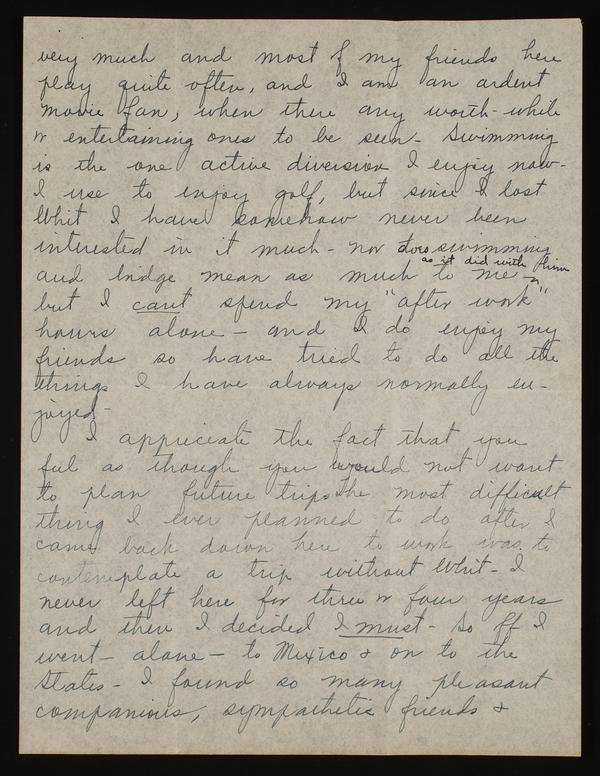 very much and most of my friends here
play quite often, and I am an ardent
movie fan, when there any worth-while
or entertaining ones to be seen - Swimming
is the one active diversion I enjoy now -
I use to enjoy golf, but since I lost
Whit I have somehow never been
interested in it much - nor does swimming
as it did with him
and bridge mean as much to me -
but I can't spend my "after work"
hours alone - and I do enjoy my
friends so have tried to do all the
things I have always normally en-
joyed -
I appreciate the fact that you
feel as though you would not want
to plan future trips. The most difficult
thing I ever planned to do after I
came back down here to work was to
contemplate a trip without Whit - I
never left here for three or four years
and then I decided I must - So off I
went - alone - to Mexico & on to the
States - I found so many pleasant
companions, sympathetic friends &